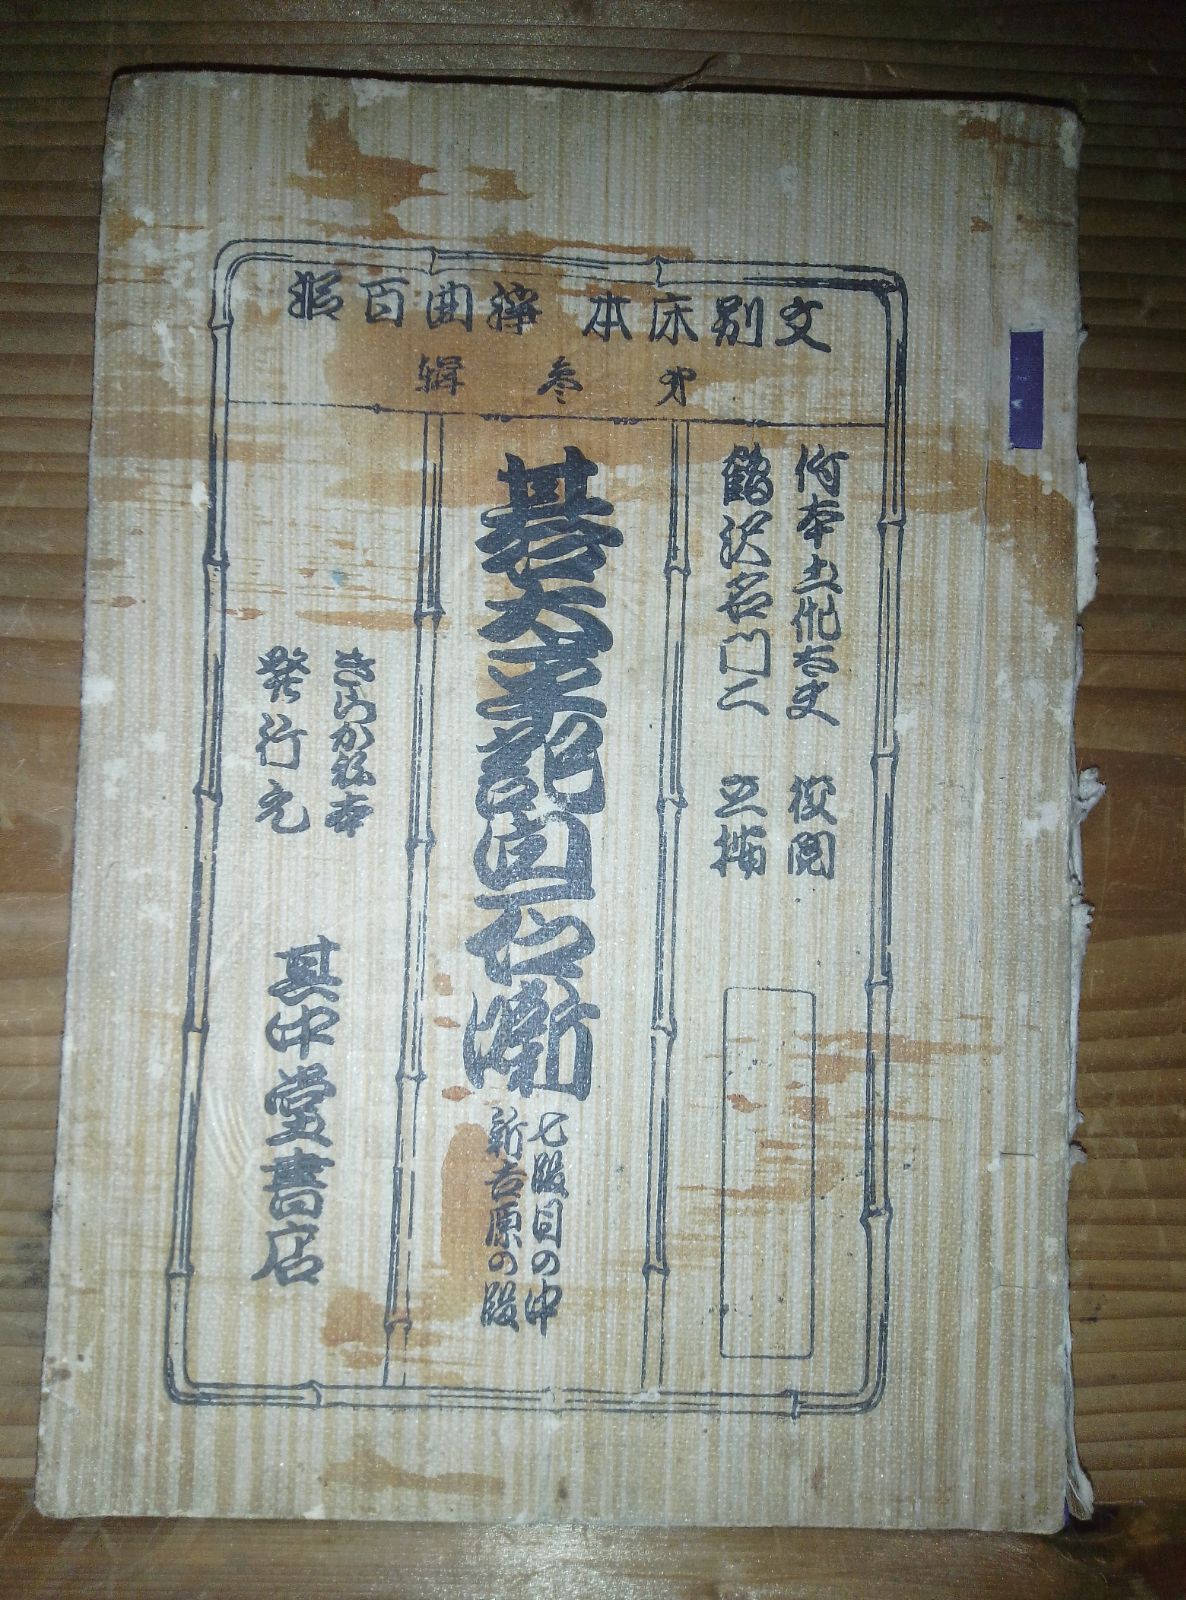 文別床本 浄曲百
第参輯
竹本土佐太夫 校閲
鶴沢
碁太平記白石噺
七段目の中
新吉原の段
発行元 其中堂書店